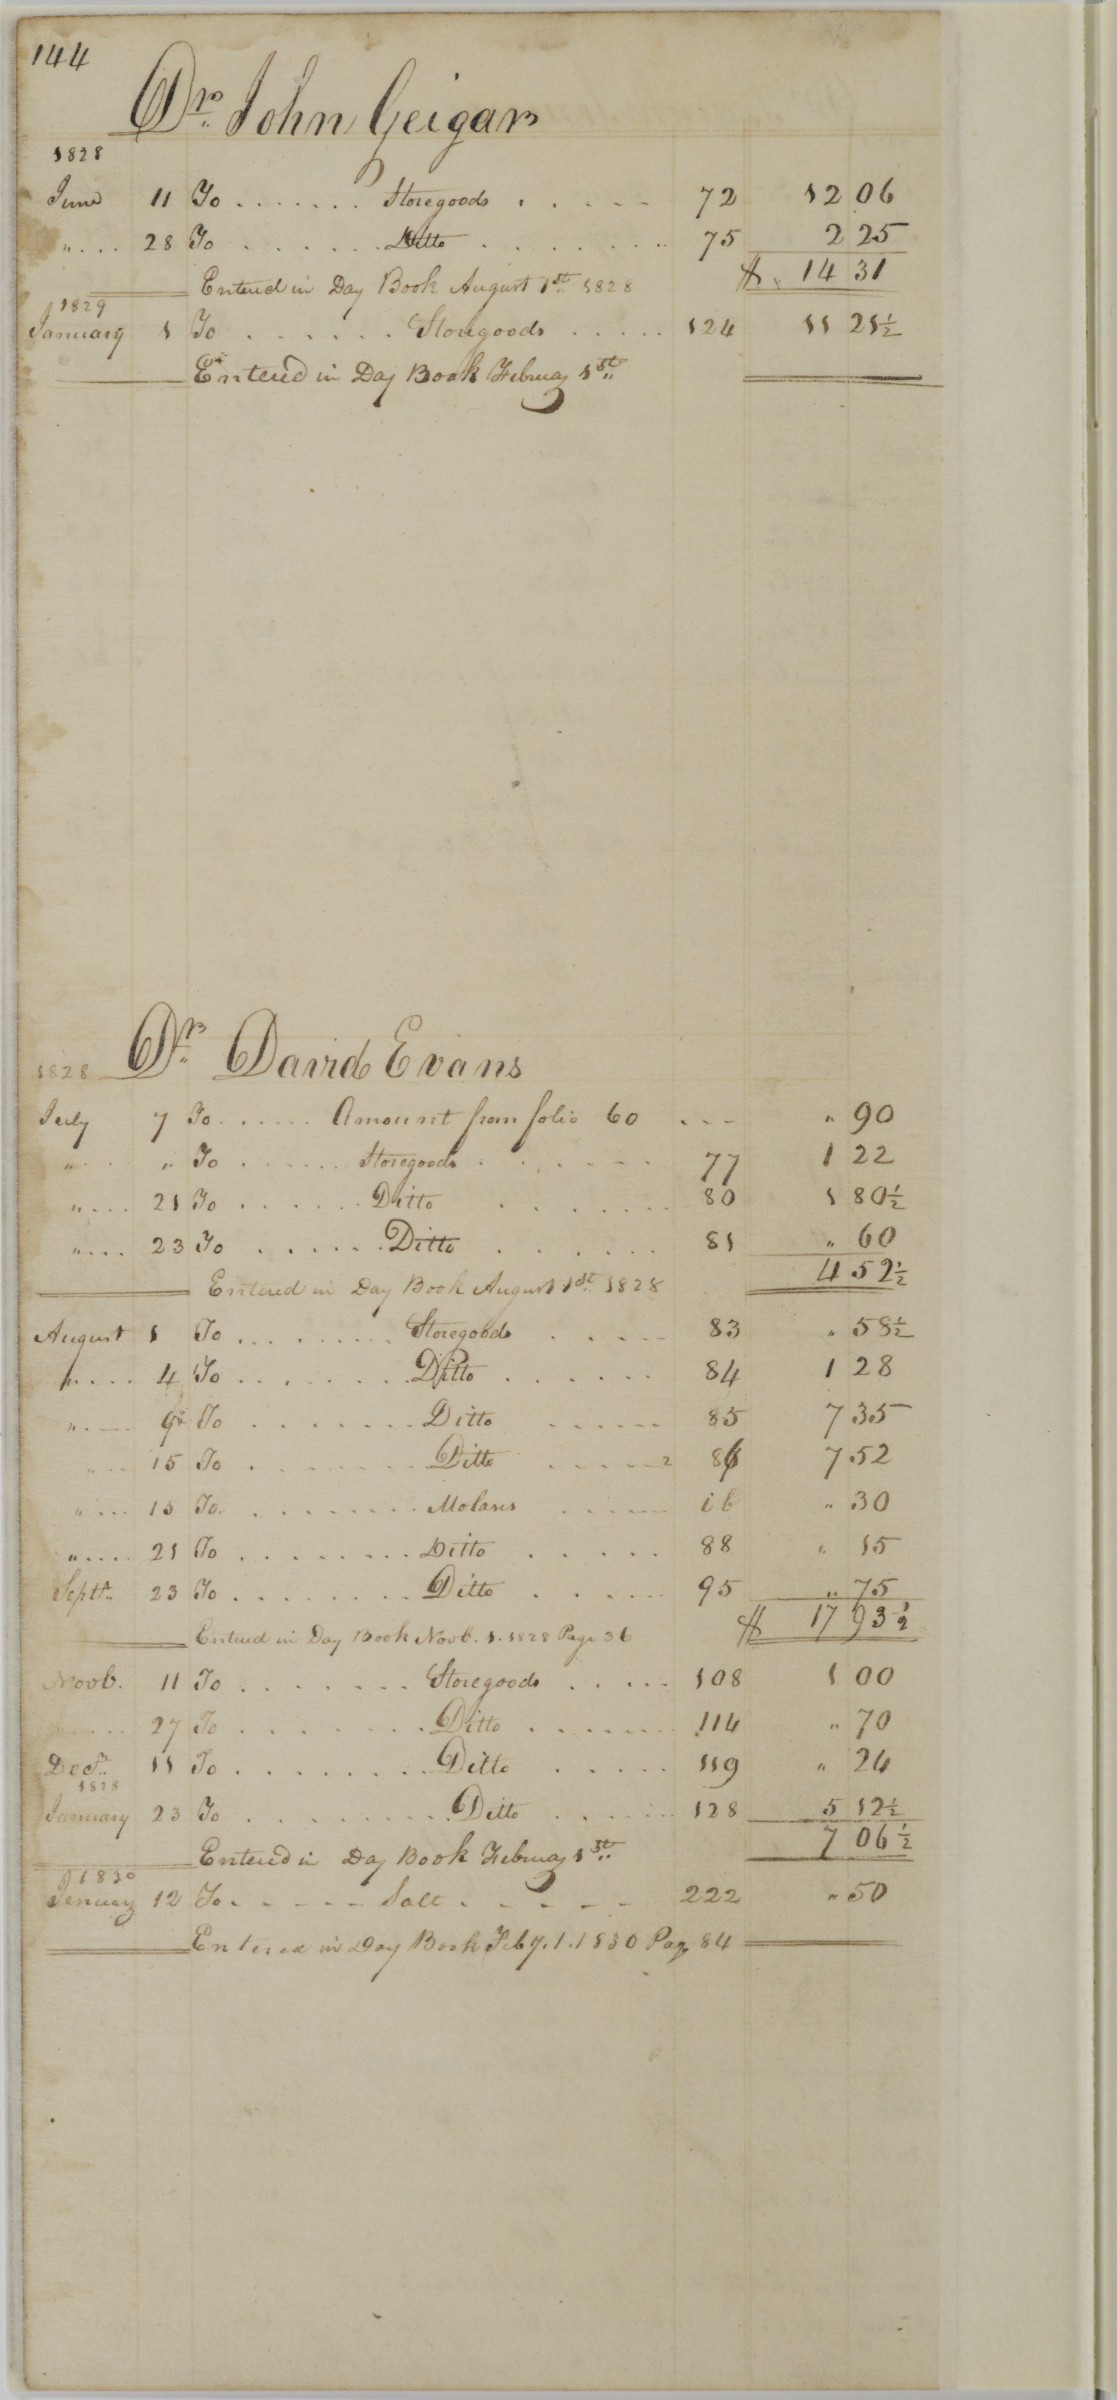 144
Dr. John Geigar
1828
June 11 To ....... Storegoods ..... 72 12 06
" .... 28 To ....... Ditto ........ 75 2 25
Entered in Day Book August 1st. 1828 $ 14 31
1829
January 1 To ...... Storegoods ..... 124 11 21½
Entered in Day Book Februay 1st.
Dr. David Evans
1828
July 7 To ...... Amount from folio 60 ... " 90
" ... " To ...... Storegoods ...... 77 1 22
" .... 21 To ...... Ditto ....... 80 1 80½
" .... 23 To ...... Ditto ...... 81 " 60
4 52½
Entered in Day Book August 1st. 1828
August 1 To ........ Storegoods ..... 83 " 58½
" .... 4 To ....... Ditto ...... 84 1 28
" .... 9 To ....... Ditto ..... 85 7 35
" ... 15 To ....... Ditto ..... 2 86 7 52
" ... 15 To ........ Molases ..... ib " 30
" .... 21 To ........ Ditto ..... 88 " 15
Septt. 23 To ........ Ditto ..... 95 " 75
$ 17 93½
Entered in Day Book Novb. 1. 1828 Page 36
Novb. 11 To ....... Storegoods ..... 108 1 00
.... 27 To ........ Ditto ...... 114 " 70
Dec. 11 To ........ Ditto ..... 119 " 24
1828
January 23 To ........ Ditto ..... 128 5 12½
7 06½
Entered in Day Book Februay 1st.
1830
January 12 To ..... Salt ..... 222 " 50
Entered in Day Book Feby. 1. 1830 Pag 84